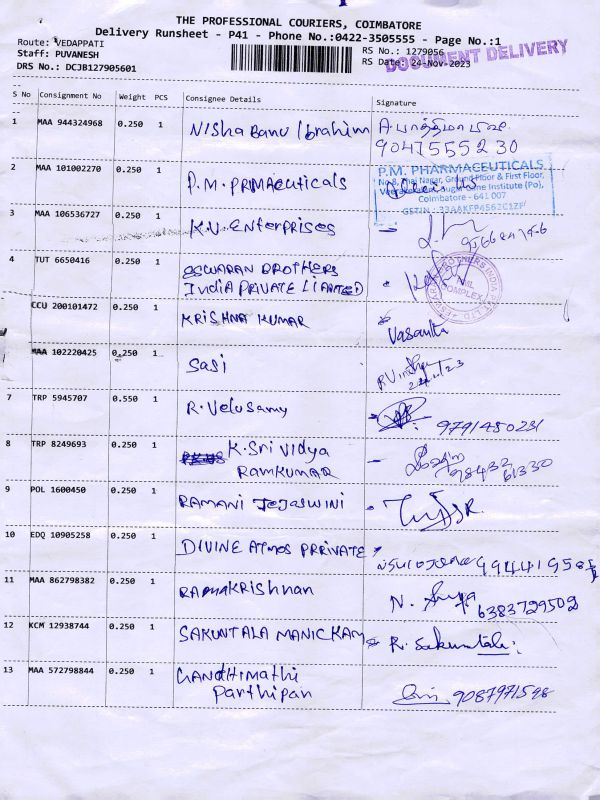 THE PROFESSIONAL COURIERS, COIMBATORE
Delivery Runsheet - P41 - Phone No.:0422-3505555 - Page No.:1
Route: VEDAPPATI
Staff: PUVANESH
DRS No.: DCJB127905601
RS No.: 1279056
RS Date: 24-Nov-2023
DOCUMENT DELIVERY
S No Consignment No Weight PCS Consignee Details Signature
1 MAA 944324968 0.250 1 Nisha Banu Ibrahim
9047555230
2 MAA 101002270 0.250 1 P.M. PRMACeuticals
P.M. PHARMACEUTICALS
Ground Floor & First Floor,
Institute (Po),
Coimbatore - 641 007
GSTIN : 33AAKFP4562C1ZF
3 MAA 106536727 0.250 1 K.V. Enterprises
4 TUT 6650416 0.250 1 ESWARAN BROTHERS
INDIA PRIVATE LIMITED
CCU 200101472 0.250 1 KRISHNA KUMAR Vasanta
MAA 102220425 0.250 1 Sasi
7 TRP 5945707 0.550 1 R. Velusamy 9791450231
8 TRP 8249693 0.250 1 K. Sri Vidya
RAMKUMAR 98432
61330
9 POL 1600450 0.250 1 RAMANI TEJASWINI
10 EDQ 10905258 0.250 1 DIVINE ATMOS PRRIVATE
11 MAA 862798382 0.250 1 RADHAKRISHNAN N.
6383729502
12 KCM 12938744 0.250 1 SAKUNTALA MANICKAM R. Sakuntala
13 MAA 572798844 0.250 1 GANDHIMATHI
Parthipan 9087971598